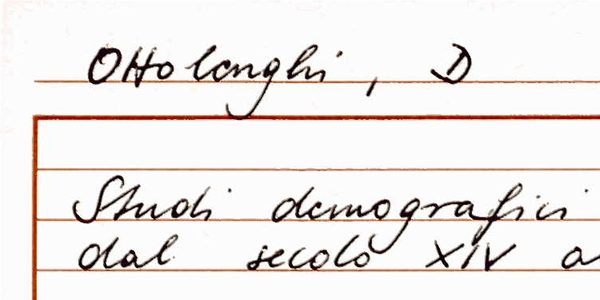 Ottolenghi, D
Studi demografici
dal secolo XIV a